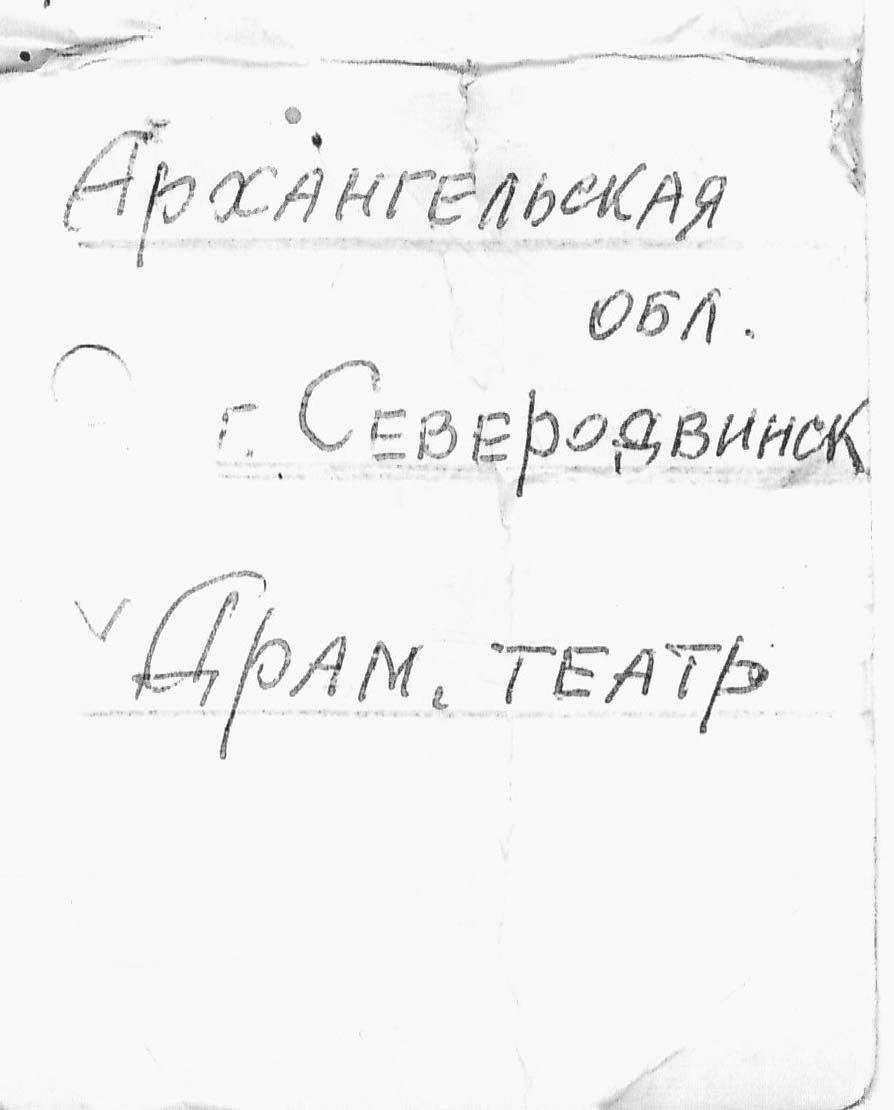 Архангельская
обл.
г. Северодвинск
Драм. театр